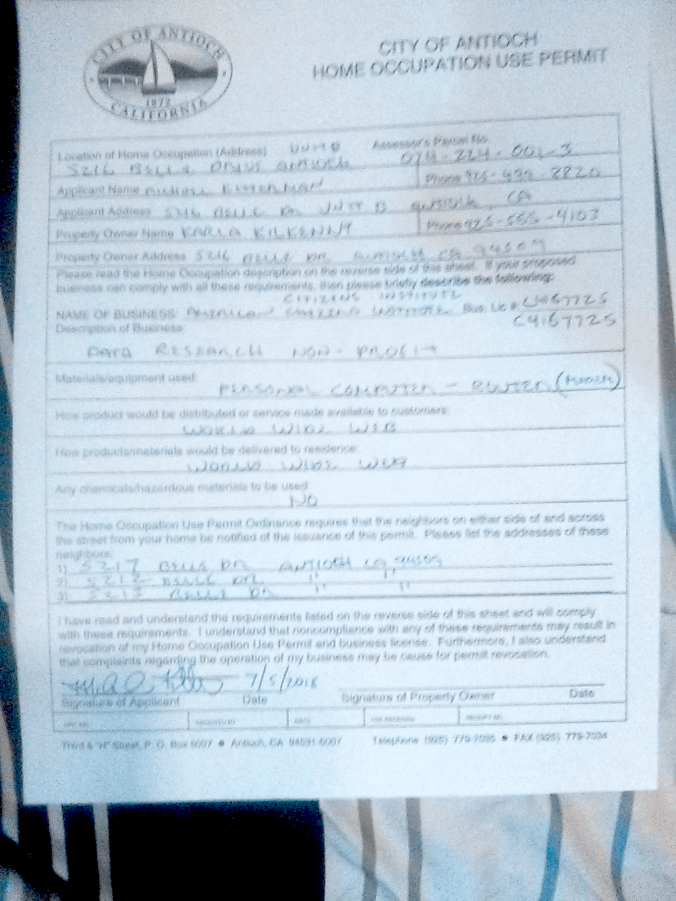 CITY OF ANTIOCH
CALIFORNIA
1872
CITY OF ANTIOCH
HOME OCCUPATION USE PERMIT
Location of Home Occupation (Address) Assessor's Parcel No.
5216 BELLE DRIVE ANTIOCH 074-224-001-3
Applicant Name MICHAEL Phone 925-
Applicant Address 5216 BELLE DR UNIT B ANTIOCH, CA
Property Owner Name KARLA KILKENNY Phone 925-555-4103
Property Owner Address 5216 BELLE DR ANTIOCH CA 94509
Please read the Home Occupation description on the reverse side of this sheet. If your proposed
business can comply with all these requirements, then please briefly describe the following:
CITIZENS INSTITUTE
NAME OF BUSINESS: AMERICAN CITIZENS INSTITUTE Bus. Lic # C4167725
Description of Business: C4167725
DATA RESEARCH NON-PROFIT
Materials/equipment used:
PERSONAL COMPUTER - ROUTER (MODEM)
How product would be distributed or service made available to customers:
WORLD WIDE WEB
How products/materials would be delivered to residence:
WORLD WIDE WEB
Any chemicals/hazardous materials to be used:
NO
The Home Occupation Use Permit Ordinance requires that the neighbors on either side of and across
the street from your home be notified of the issuance of this permit. Please list the addresses of these
neighbors:
1) 5217 BELLE DR ANTIOCH CA 94509
2) 5212 BELLE DR " "
3) 5213 BELLE DR " "
I have read and understand the requirements listed on the reverse side of this sheet and will comply
with these requirements. I understand that noncompliance with any of these requirements may result in
revocation of my Home Occupation Use Permit and business license. Furthermore, I also understand
that complaints regarding the operation of my business may be cause for permit revocation.
7/5/2018
Signature of Applicant Date Signature of Property Owner Date
Third & "H" Street, P. O. Box 5007 ● Antioch, CA 94531-5007 Telephone (925) 779-7035 ● FAX (925) 779-7034